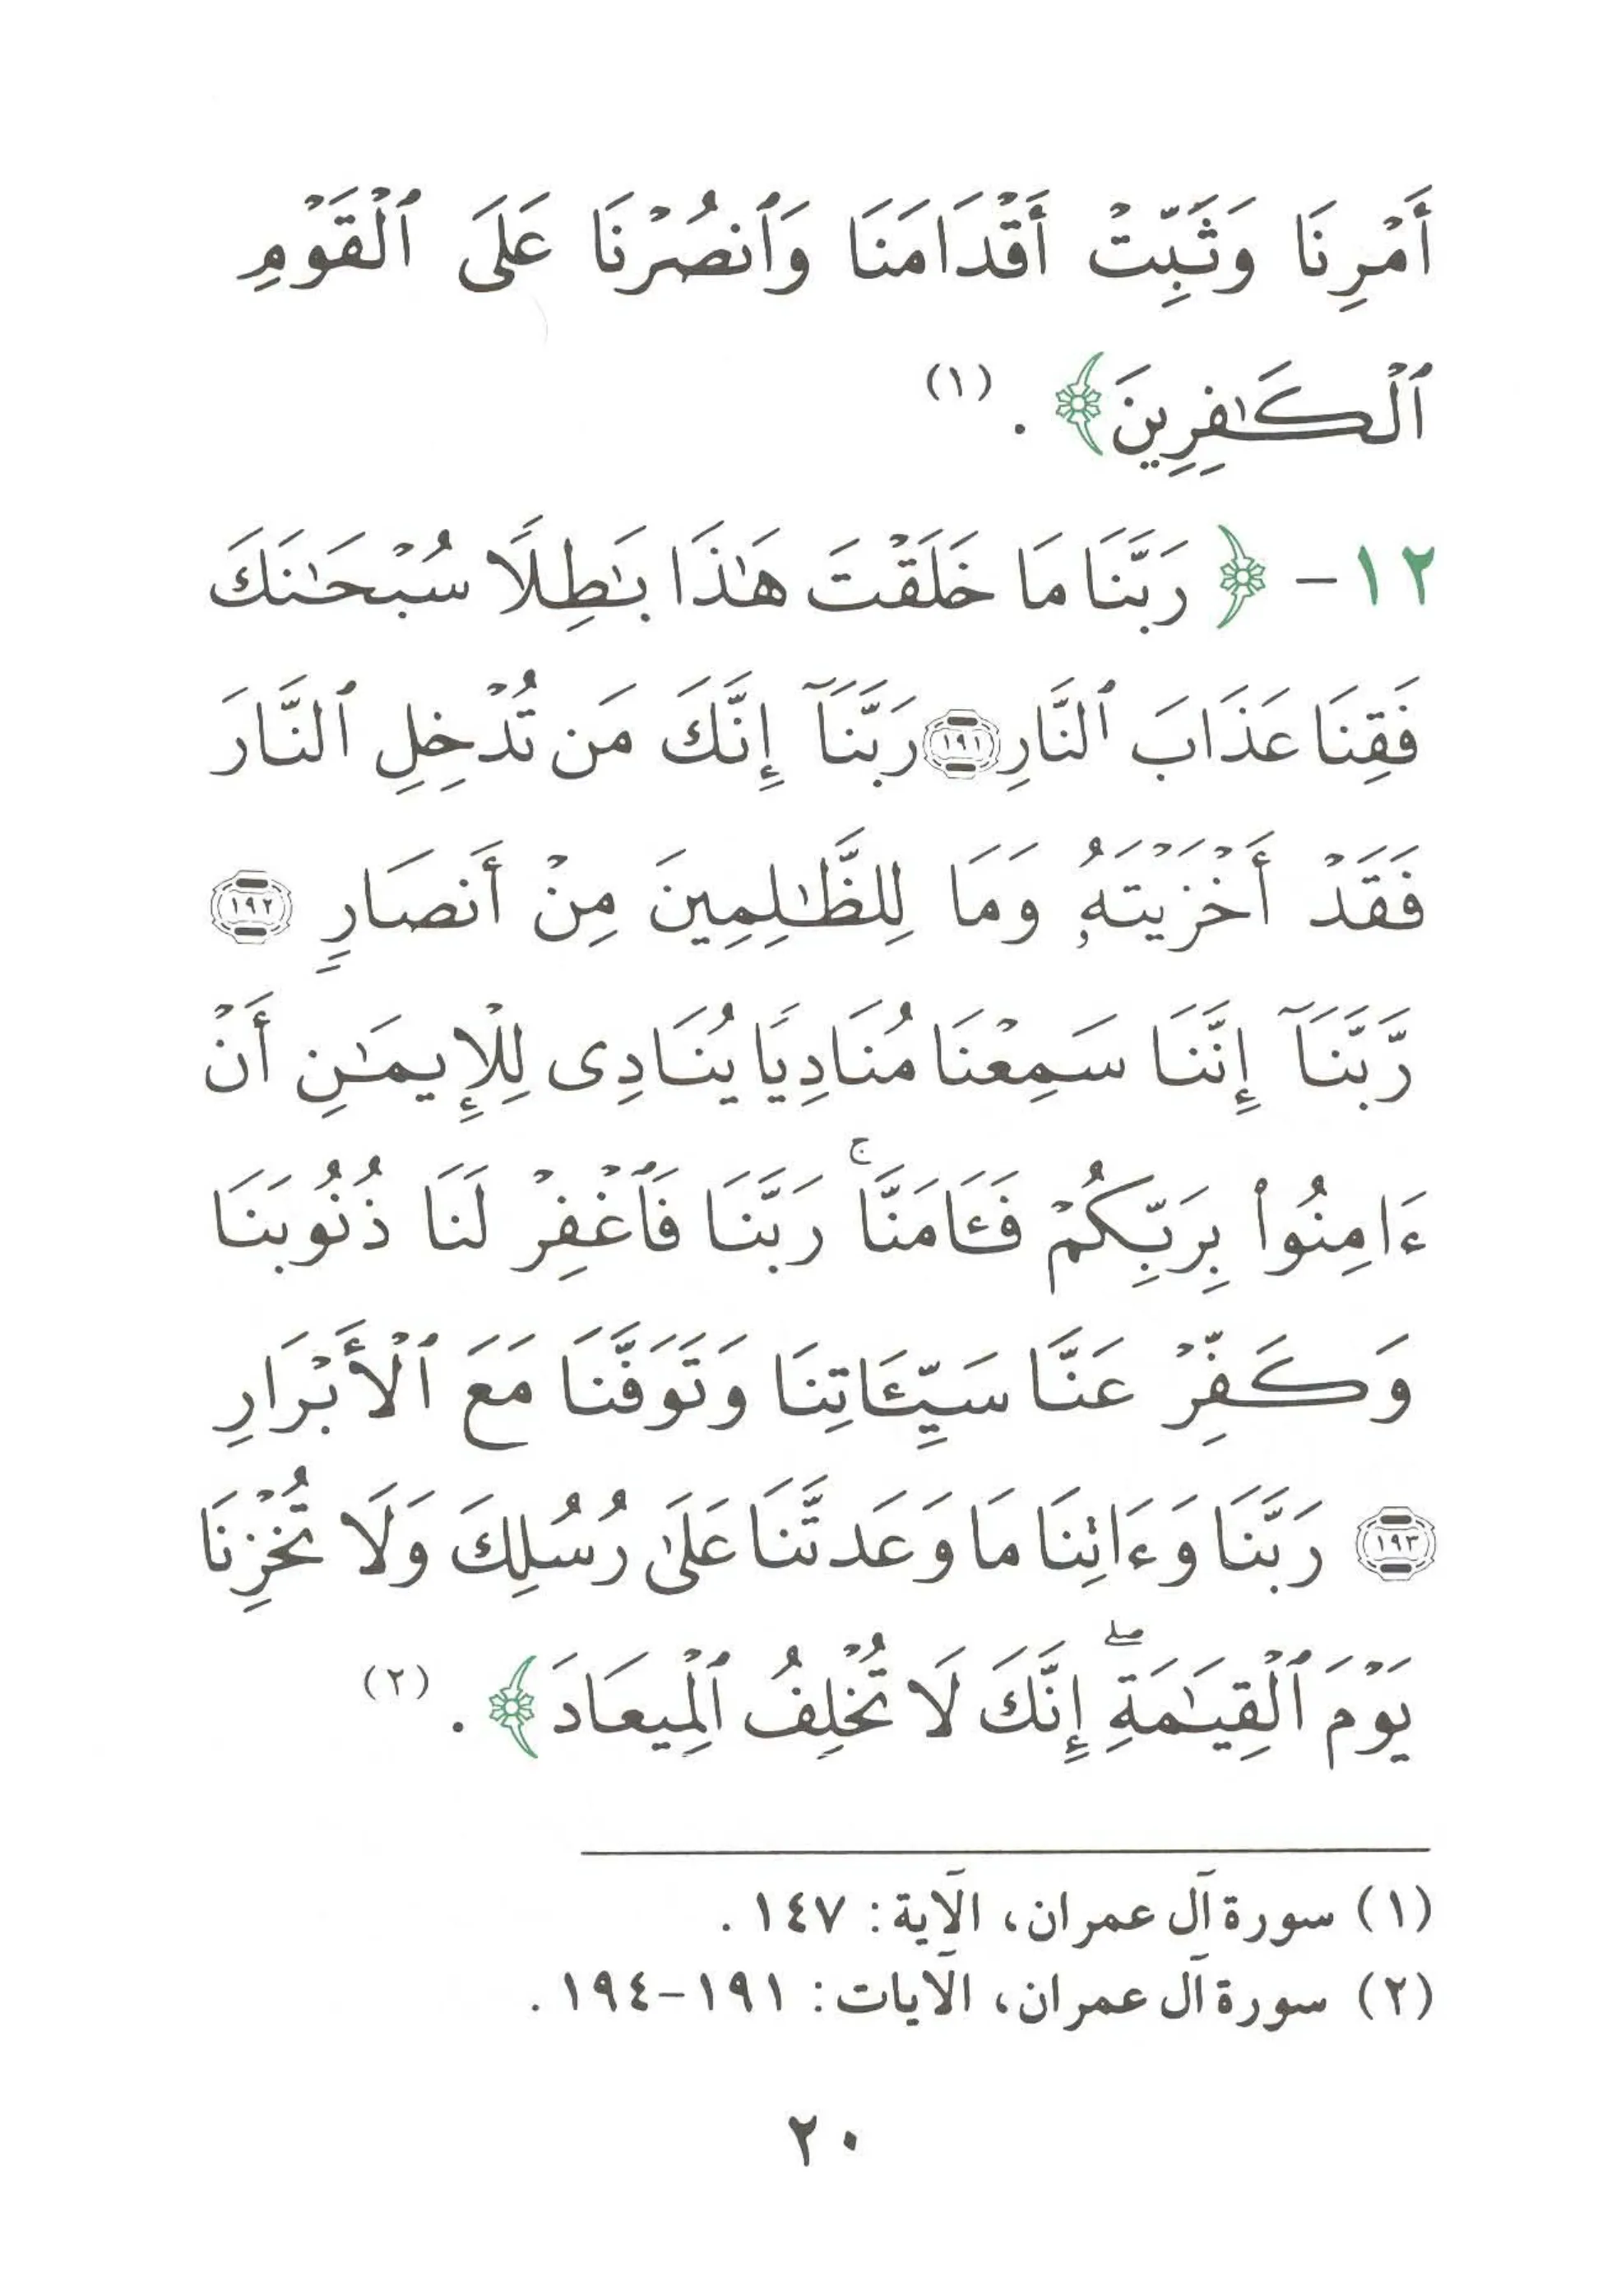 أَمْرِنَا وَثَبِّتْ أَقْدَامَنَا وَٱنصُرْنَا عَلَى ٱلْقَوْمِ
ٱلْكَٰفِرِينَ﴾ . (١)
١٢- ﴿ رَبَّنَا مَا خَلَقْتَ هَٰذَا بَٰطِلًا سُبْحَٰنَكَ
فَقِنَا عَذَابَ ٱلنَّارِ ١٩١ رَبَّنَآ إِنَّكَ مَن تُدْخِلِ ٱلنَّارَ
فَقَدْ أَخْزَيْتَهُۥ وَمَا لِلظَّٰلِمِينَ مِنْ أَنصَارٍ ١٩٢
رَّبَّنَآ إِنَّنَا سَمِعْنَا مُنَادِيًا يُنَادِى لِلْإِيمَٰنِ أَنْ
ءَامِنُوا۟ بِرَبِّكُمْ فَـَٔامَنَّا ۚ رَبَّنَا فَٱغْفِرْ لَنَا ذُنُوبَنَا
وَكَفِّرْ عَنَّا سَيِّـَٔاتِنَا وَتَوَفَّنَا مَعَ ٱلْأَبْرَارِ
١٩٣ رَبَّنَا وَءَاتِنَا مَا وَعَدتَّنَا عَلَىٰ رُسُلِكَ وَلَا تُخْزِنَا
يَوْمَ ٱلْقِيَٰمَةِ ۖ إِنَّكَ لَا تُخْلِفُ ٱلْمِيعَادَ﴾ . (٢)
(١) سورة آل عمران، الآية: ١٤٧ .
(٢) سورة آل عمران، الآيات: ١٩١-١٩٤ .
٢٠